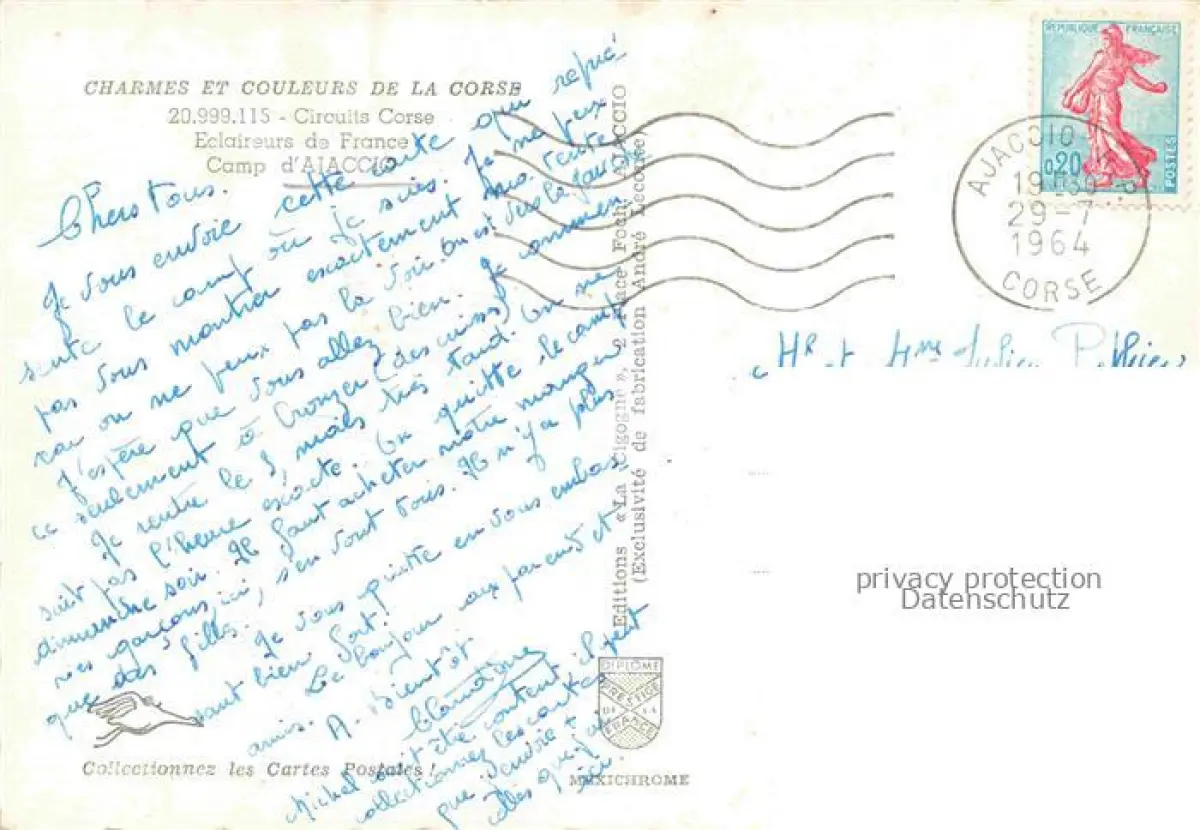 CHARMES ET COULEURS DE LA CORSE
20.999.115 - Circuits Corse
Eclaireurs de France
Camp d'AJACCIO
Chers tous.
Je vous envoie cette carte qui repré-
sente le camp où je suis. Je ne peux
pas vous montrer exactement ma tente
car on ne peux pas la voir. On est vers la gauche
J'espère que vous allez bien. Je commen
ce seulement à bronzer (des cuisses)
Je rentre le 3, mais très tard. On ne
sait pas l'heure exacte. On quitte le camp
dimanche soir. Il faut acheter notre manger
Les garçons, ici, s'en vont tous. Il n'y a plus
que des filles. Je vous quitte en vous embras
sant bien fort!
Le bonjour aux parents et
amis. A Bientôt
Claudine
Michel doit être content il peut
collectionner les cartes
que j'envoie +
celles que j'ai
ici.
Collectionnez les Cartes Postales !
Editions «La Cigogne», 2 Place Foch, AJACCIO
(Exclusivité de fabrication André Leconte)
DIPLOME
PRESTIGE
DE LA
FRANCE
MEXICHROME
REPUBLIQUE FRANÇAISE
0,20
POSTES
AJACCIO
19H30
29-7
1964
CORSE
Mr et Mme
privacy protection
Datenschutz